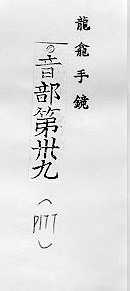 龍龕手鏡
音部第卅九
(PITT)